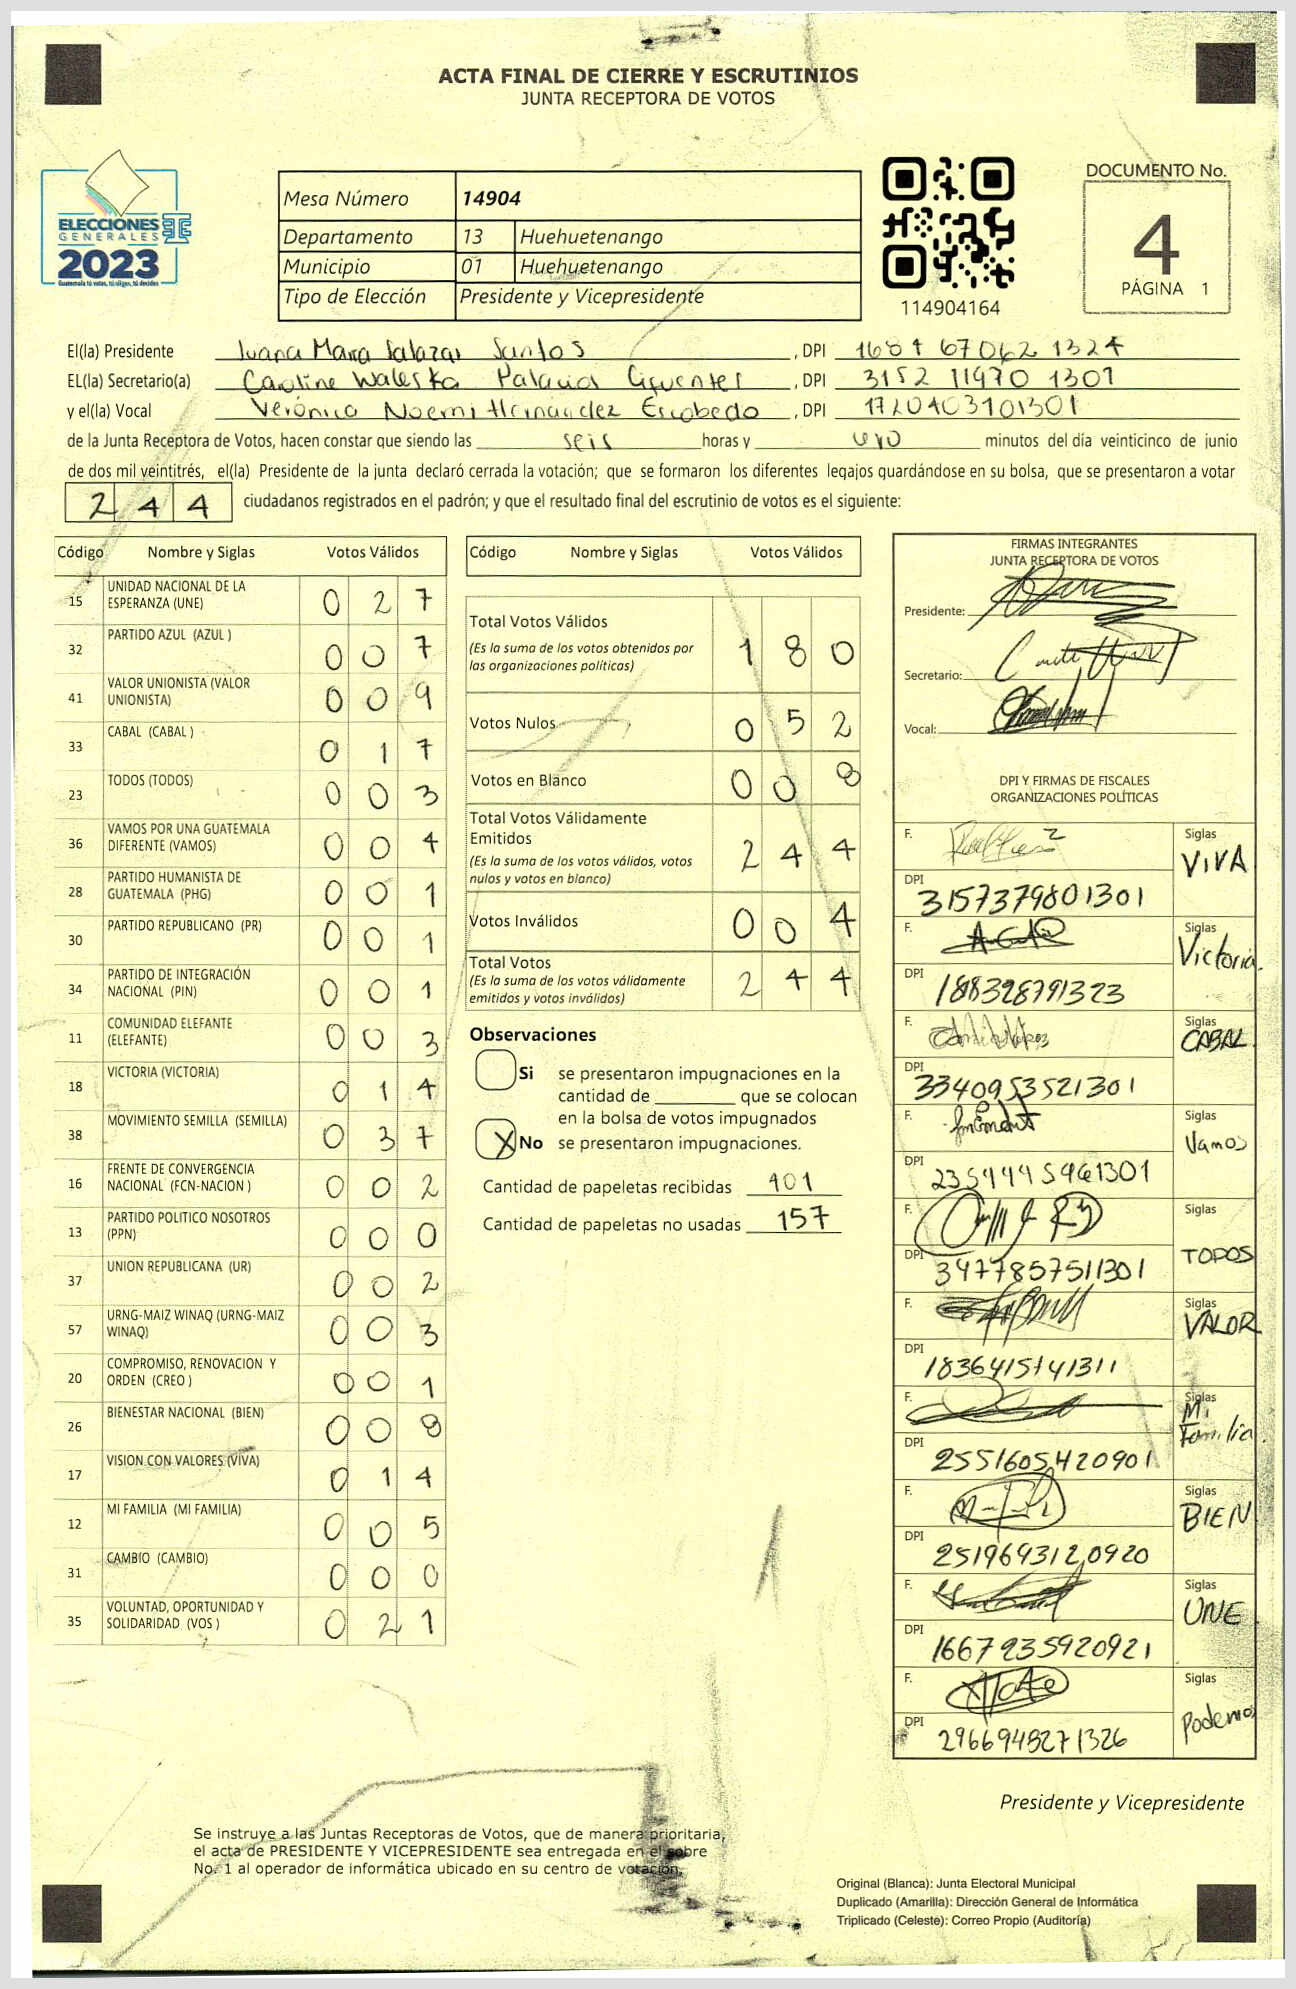 ACTA FINAL DE CIERRE Y ESCRUTINIOS
JUNTA RECEPTORA DE VOTOS
ELECCIONES
GENERALES
2023
Guatemala tú votas, tú eliges, tú decides
Mesa Número 14904
Departamento 13 Huehuetenango
Municipio 01 Huehuetenango
Tipo de Elección Presidente y Vicepresidente
114904164
DOCUMENTO No.
4
PÁGINA 1
El(la) Presidente Juana Maria Salazar Santos , DPI 1684 67062 1324
EL(la) Secretario(a) Caroline Waleska Palacios Cifuentes , DPI 3152 11970 1301
y el(la) Vocal Verónica Noemi Hernandez Escobedo , DPI 1720403101301
de la Junta Receptora de Votos, hacen constar que siendo las seis horas y uno minutos del día veinticinco de junio
de dos mil veintitrés, el(la) Presidente de la junta declaró cerrada la votación; que se formaron los diferentes legajos quardándose en su bolsa, que se presentaron a votar
244 ciudadanos registrados en el padrón; y que el resultado final del escrutinio de votos es el siguiente:
Código Nombre y Siglas Votos Válidos
15 UNIDAD NACIONAL DE LA ESPERANZA (UNE) 0 2 7
32 PARTIDO AZUL (AZUL ) 0 0 7
41 VALOR UNIONISTA (VALOR UNIONISTA) 0 0 9
33 CABAL (CABAL ) 0 1 7
23 TODOS (TODOS) 0 0 3
36 VAMOS POR UNA GUATEMALA DIFERENTE (VAMOS) 0 0 4
28 PARTIDO HUMANISTA DE GUATEMALA (PHG) 0 0 1
30 PARTIDO REPUBLICANO (PR) 0 0 1
34 PARTIDO DE INTEGRACIÓN NACIONAL (PIN) 0 0 1
11 COMUNIDAD ELEFANTE (ELEFANTE) 0 0 3
18 VICTORIA (VICTORIA) 0 1 4
38 MOVIMIENTO SEMILLA (SEMILLA) 0 3 7
16 FRENTE DE CONVERGENCIA NACIONAL (FCN-NACION ) 0 0 2
13 PARTIDO POLITICO NOSOTROS (PPN) 0 0 0
37 UNION REPUBLICANA (UR) 0 0 2
57 URNG-MAIZ WINAQ (URNG-MAIZ WINAQ) 0 0 3
20 COMPROMISO, RENOVACION Y ORDEN (CREO ) 0 0 1
26 BIENESTAR NACIONAL (BIEN) 0 0 8
17 VISION CON VALORES (VIVA) 0 1 4
12 MI FAMILIA (MI FAMILIA) 0 0 5
31 CAMBIO (CAMBIO) 0 0 0
35 VOLUNTAD, OPORTUNIDAD Y SOLIDARIDAD (VOS ) 0 2 1
Código Nombre y Siglas Votos Válidos
Total Votos Válidos 1 8 0
(Es la suma de los votos obtenidos por
las organizaciones políticas)
Votos Nulos 0 5 2
Votos en Blanco 0 0 8
Total Votos Válidamente
Emitidos 2 4 4
(Es la suma de los votos válidos, votos
nulos y votos en blanco)
Votos Inválidos 0 0 4
Total Votos 2 4 4
(Es la suma de los votos válidamente
emitidos y votos inválidos)
Observaciones
Si se presentaron impugnaciones en la
cantidad de ________ que se colocan
en la bolsa de votos impugnados
X No se presentaron impugnaciones.
Cantidad de papeletas recibidas 401
Cantidad de papeletas no usadas 157
FIRMAS INTEGRANTES
JUNTA RECEPTORA DE VOTOS
Presidente:
Secretario:
Vocal:
DPI Y FIRMAS DE FISCALES
ORGANIZACIONES POLÍTICAS
F. Siglas VIVA
DPI 3157379801301
F. Siglas Victoria.
DPI 188328791323
F. Siglas CABAL
DPI 3340953521301
F. Siglas Vamos
DPI 2354445961301
F. Siglas TODOS
DPI 3477857511301
F. Siglas VALOR
DPI 1836415141311
F. Siglas Mi Familia.
DPI 2551605420901
F. Siglas BIEN
DPI 2519693120920
F. Siglas UNE
DPI 1667235920921
F. Siglas Podemos
DPI 2966948271326
Presidente y Vicepresidente
Se instruye a las Juntas Receptoras de Votos, que de manera prioritaria,
el acta de PRESIDENTE Y VICEPRESIDENTE sea entregada en el sobre
No. 1 al operador de informática ubicado en su centro de votación.
Original (Blanca): Junta Electoral Municipal
Duplicado (Amarilla): Dirección General de Informática
Triplicado (Celeste): Correo Propio (Auditoría)